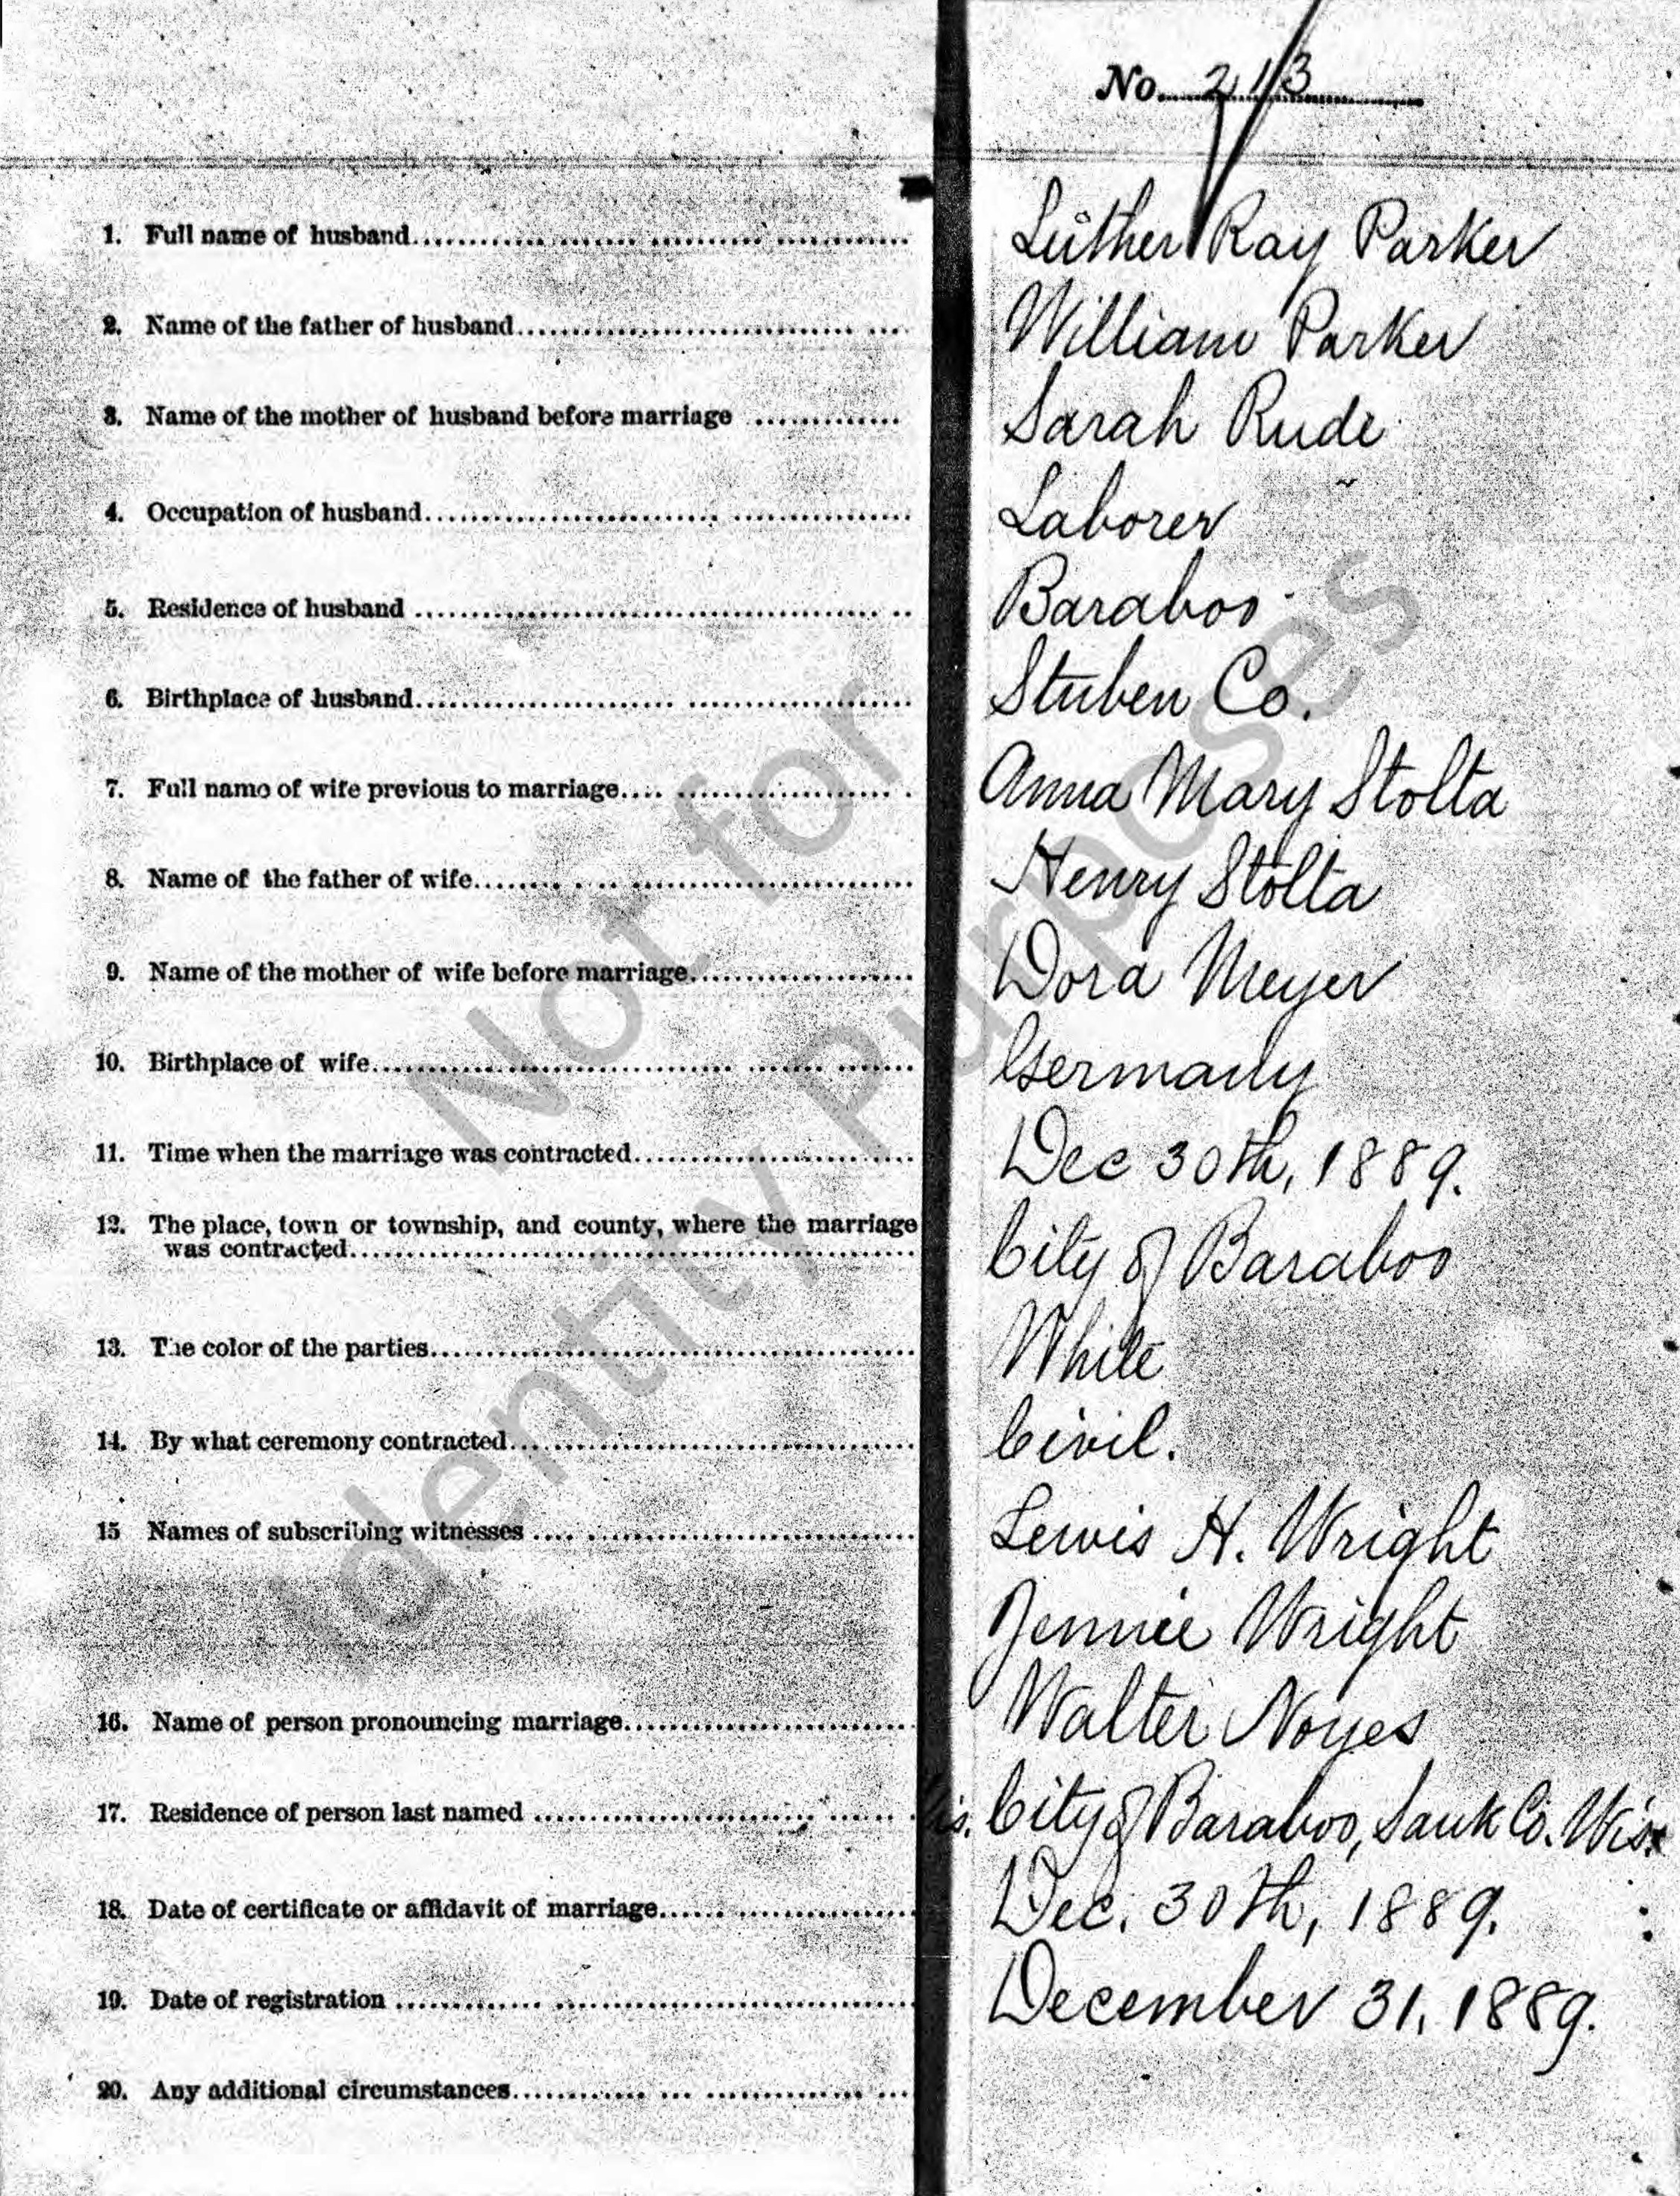 No. 213
1. Full name of husband Luther Ray Parker
2. Name of the father of husband William Parker
3. Name of the mother of husband before marriage Sarah Rude
4. Occupation of husband Laborer
5. Residence of husband Baraboo
6. Birthplace of husband Stuben Co.
7. Full name of wife previous to marriage Anna Mary Stolta
8. Name of the father of wife Henry Stolta
9. Name of the mother of wife before marriage Dora Meyer
10. Birthplace of wife Germany
11. Time when the marriage was contracted Dec 30th, 1889.
12. The place, town or township, and county, where the marriage
was contracted City of Baraboo
13. The color of the parties White
14. By what ceremony contracted Civil.
15 Names of subscribing witnesses Lewis H. Wright
Jennie Wright
16. Name of person pronouncing marriage Walter Noyes
17. Residence of person last named City of Baraboo, Sauk Co. Wis.
18. Date of certificate or affidavit of marriage Dec. 30th, 1889.
19. Date of registration December 31, 1889.
20. Any additional circumstances
Not for
Identity Purposes